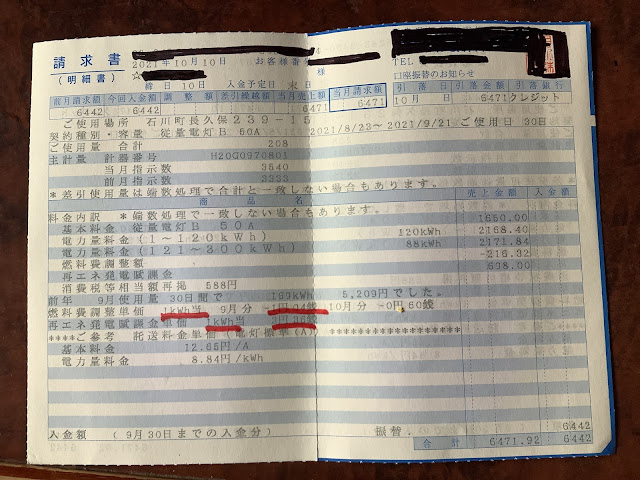 請求書
(明細書)
2021年10月10日 お客様番号
☆
様
TEL
口座振替のお知らせ
締日 10日 入金予定日 末日
前月請求額 今回入金額 調整額 差引繰越額 当月売上額 当月請求額 引落日 引落金額 引落銀行
6442 6442 6471 6471 10月 日 6471クレジット
ご使用場所 石川町長久保239-15
契約種別・容量 従量電灯B 50A 2021/8/23~2021/9/21 ご使用日 30日
ご使用量 合計 208
主計量 計器番号 H20Q0970801
当月指示数 3540
前月指示数 3333
*差引使用量は端数処理で合計と一致しない場合もあります。
商品名 売上金額 入金額
料金内訳 *端数処理で一致しない場合もあります。
基本料金 従量電灯B 50A 1650.00
電力量料金(1~120kWh) 120kWh 2168.40
電力量料金(121~300kWh) 88kWh 2171.84
燃料費調整額 -216.32
再エネ発電賦課金 698.00
消費税等相当額再掲 588円
前年 9月使用量 30日間で 169kWh 5,209円でした。
燃料費調整単価 1kWh当 9月分 10月分 -0円60銭
再エネ発電賦課金単価 1kWh当
****ご参考 託送料金単価 電灯標準(A)
基本料金 12.65円/A
電力量料金 8.84円/kWh
入金額 (9月30日までの入金分) 振替. 6442
合計 6471.92 6442